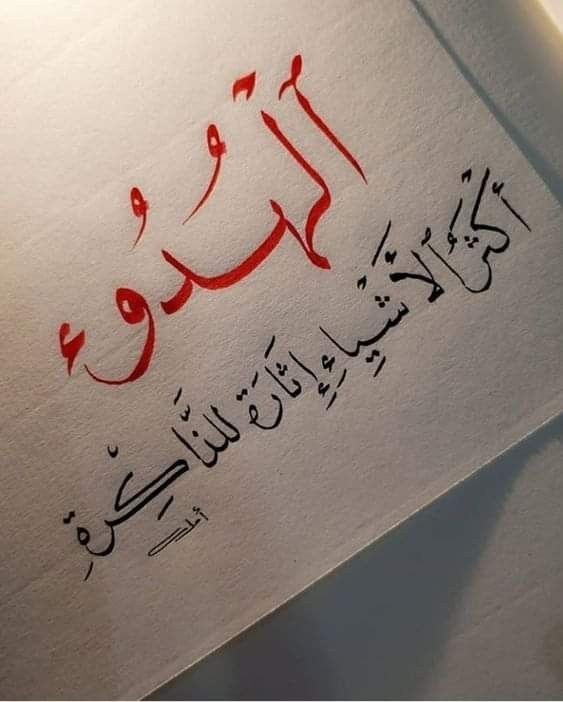 اَلْهُدُوء
أكْثَرُ اْلأَشْيَاءِ إِثَارَة للذَّاكِرْةِ